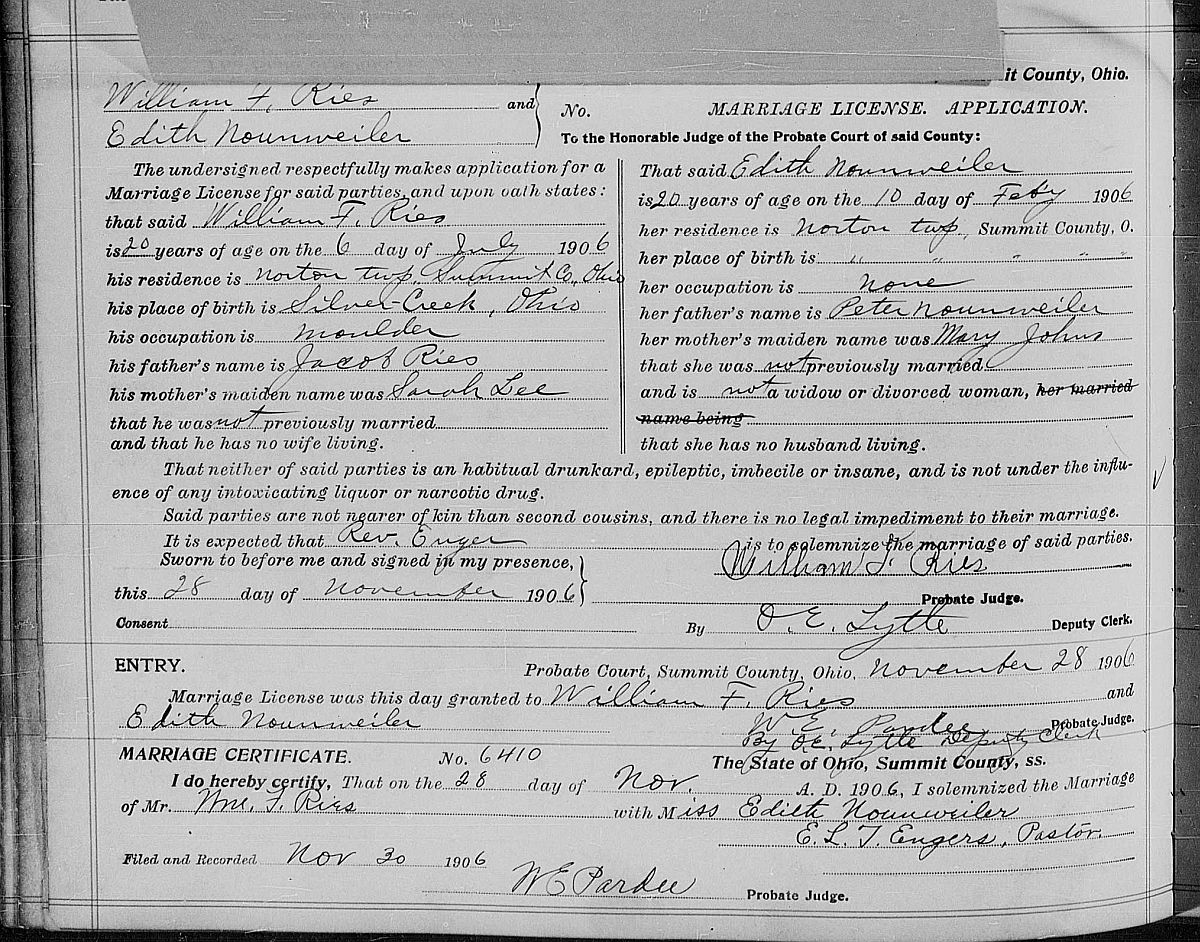 it County, Ohio.
William F. Ries and
Edith Nounweiler
No. MARRIAGE LICENSE. APPLICATION.
To the Honorable Judge of the Probate Court of said County:
The undersigned respectfully makes application for a
Marriage License for said parties, and upon oath states:
that said William F. Ries
is 20 years of age on the 6 day of July 1906
his residence is Norton twp. Summit Co., Ohio
his place of birth is Silver Creek, Ohio
his occupation is moulder
his father's name is Jacob Ries
his mother's maiden name was Sarah Lee
that he was not previously married
and that he has no wife living.
That said Edith Nounweiler
is 20 years of age on the 10 day of Feby 1906
her residence is Norton twp, Summit County, O.
her place of birth is " " " " "
her occupation is None
her father's name is Peter Nounweiler
her mother's maiden name was Mary Johns
that she was not previously married
and is not a widow or divorced woman, her married
name being
that she has no husband living.
That neither of said parties is an habitual drunkard, epileptic, imbecile or insane, and is not under the influ-
ence of any intoxicating liquor or narcotic drug.
Said parties are not nearer of kin than second cousins, and there is no legal impediment to their marriage.
It is expected that Rev. Enger is to solemnize the marriage of said parties.
Sworn to before me and signed in my presence,
William F. Ries
this 28 day of November 1906
Probate Judge.
Consent By O. E. Lytle Deputy Clerk.
ENTRY. Probate Court, Summit County, Ohio, November 28 1906
Marriage License was this day granted to William F. Ries and
Edith Nounweiler W. E. Pardee Probate Judge.
By O.E. Lytle Deputy Clerk
MARRIAGE CERTIFICATE. No. 6410 The State of Ohio, Summit County, ss.
I do hereby certify, That on the 28 day of Nov. A. D. 1906, I solemnized the Marriage
of Mr. Wm. F. Ries with Miss Edith Nounweiler
E. L. T. Engers, Pastor.
Filed and Recorded Nov 30 1906
W E Pardee Probate Judge.